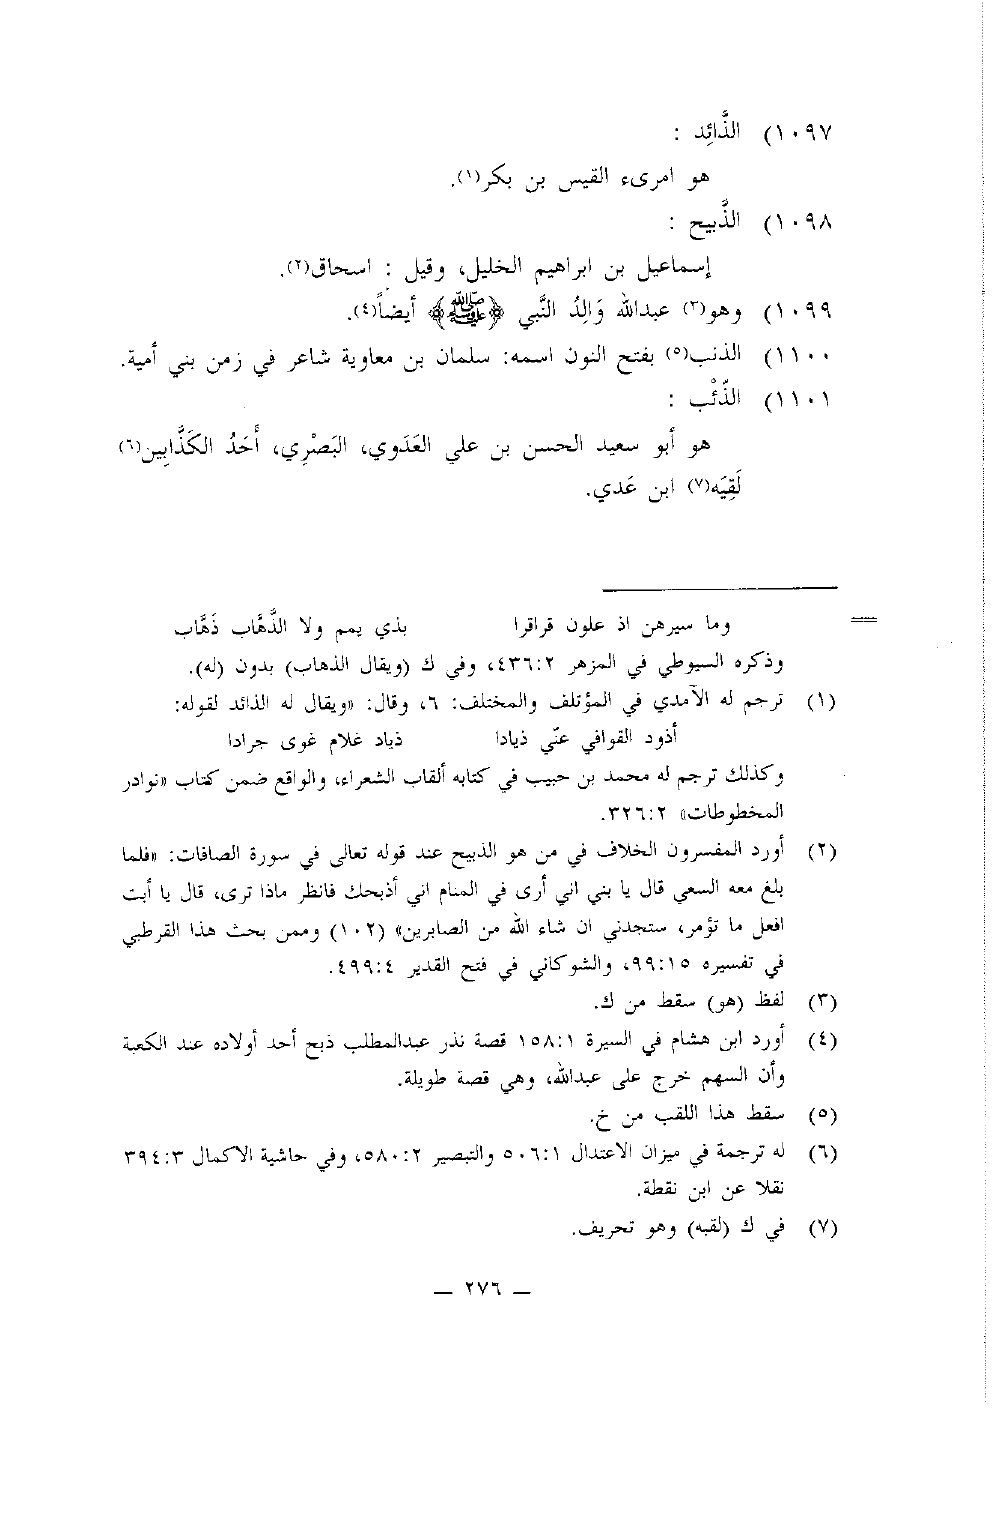 ١٠٩٧) الذَّائِد :
هو امرىء القيس بن بكر(١).
١٠٩٨) الذَّبيح :
إسماعيل بن ابراهيم الخليل، وقيل : اسحاق(٢).
١٠٩٩) وهو(٣) عبدالله وَالِدُ النَّبي ﴿ﷺ﴾ أيضاً(٤).
١١٠٠) الذنب(٥) بفتح النون اسمه: سلمان بن معاوية شاعر في زمن بني أمية.
١١٠١) الذِّئْب :
هو أبو سعيد الحسن بن علي العَدَوي، البَصْرِي، أَحَدُ الكَذَّابِين(٦)
لَقِيَه(٧) ابن عَدي.
= وما سيرهن اذ علون قراقرا بذي يمم ولا الذَّهَّاب ذَهَّاب
وذكره السيوطي في المزهر ٤٣٦:٢، وفي ك (ويقال الذهاب) بدون (له).
(١) ترجم له الآمدي في المؤتلف والمختلف: ٦، وقال: «ويقال له الذائد لقوله:
أذود القوافي عنّي ذيادا ذياد غلام غوى جرادا
وكذلك ترجم له محمد بن حبيب في كتابه ألقاب الشعراء، والواقع ضمن كتاب «نوادر
المخطوطات» ٣٢٦:٢.
(٢) أورد المفسرون الخلاف في من هو الذبيح عند قوله تعالى في سورة الصافات: «فلما
بلغ معه السعي قال يا بني اني أرى في المنام اني أذبحك فانظر ماذا ترى، قال يا أبت
افعل ما تؤمر، ستجدني ان شاء الله من الصابرين» (١٠٢) وممن بحث هذا القرطبي
في تفسيره ٩٩:١٥، والشوكاني في فتح القدير ٤٩٩:٤.
(٣) لفظ (هو) سقط من ك.
(٤) أورد ابن هشام في السيرة ١٥٨:١ قصة نذر عبدالمطلب ذبح أحد أولاده عند الكعبة
وأن السهم خرج على عبدالله، وهي قصة طويلة.
(٥) سقط هذا اللقب من خ.
(٦) له ترجمة في ميزان الاعتدال ٥٠٦:١ والتبصير ٥٨٠:٢، وفي حاشية الاكمال ٣٩٤:٣
نقلا عن ابن نقطة.
(٧) في ك (لقبه) وهو تحريف.
— ٢٧٦ —